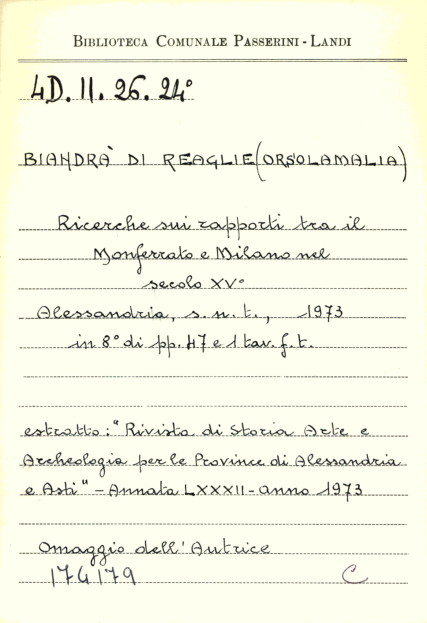 BIBLIOTECA COMUNALE PASSERINI - LANDI
4D. II. 26. 24°
BIANDRÀ DI REAGLIE (ORSOLAMALIA)
Ricerche sui rapporti tra il
Monferrato e Milano nel
secolo XV°
Alessandria, s. n. t., 1973
in 8° di pp. 47 e 1 tav. f. t.
estratto: "Rivista di Storia Arte e
Archeologia per le Province di Alessandria
e Asti" - Annata LXXXII - anno 1973
Omaggio dell'Autrice
174179 C